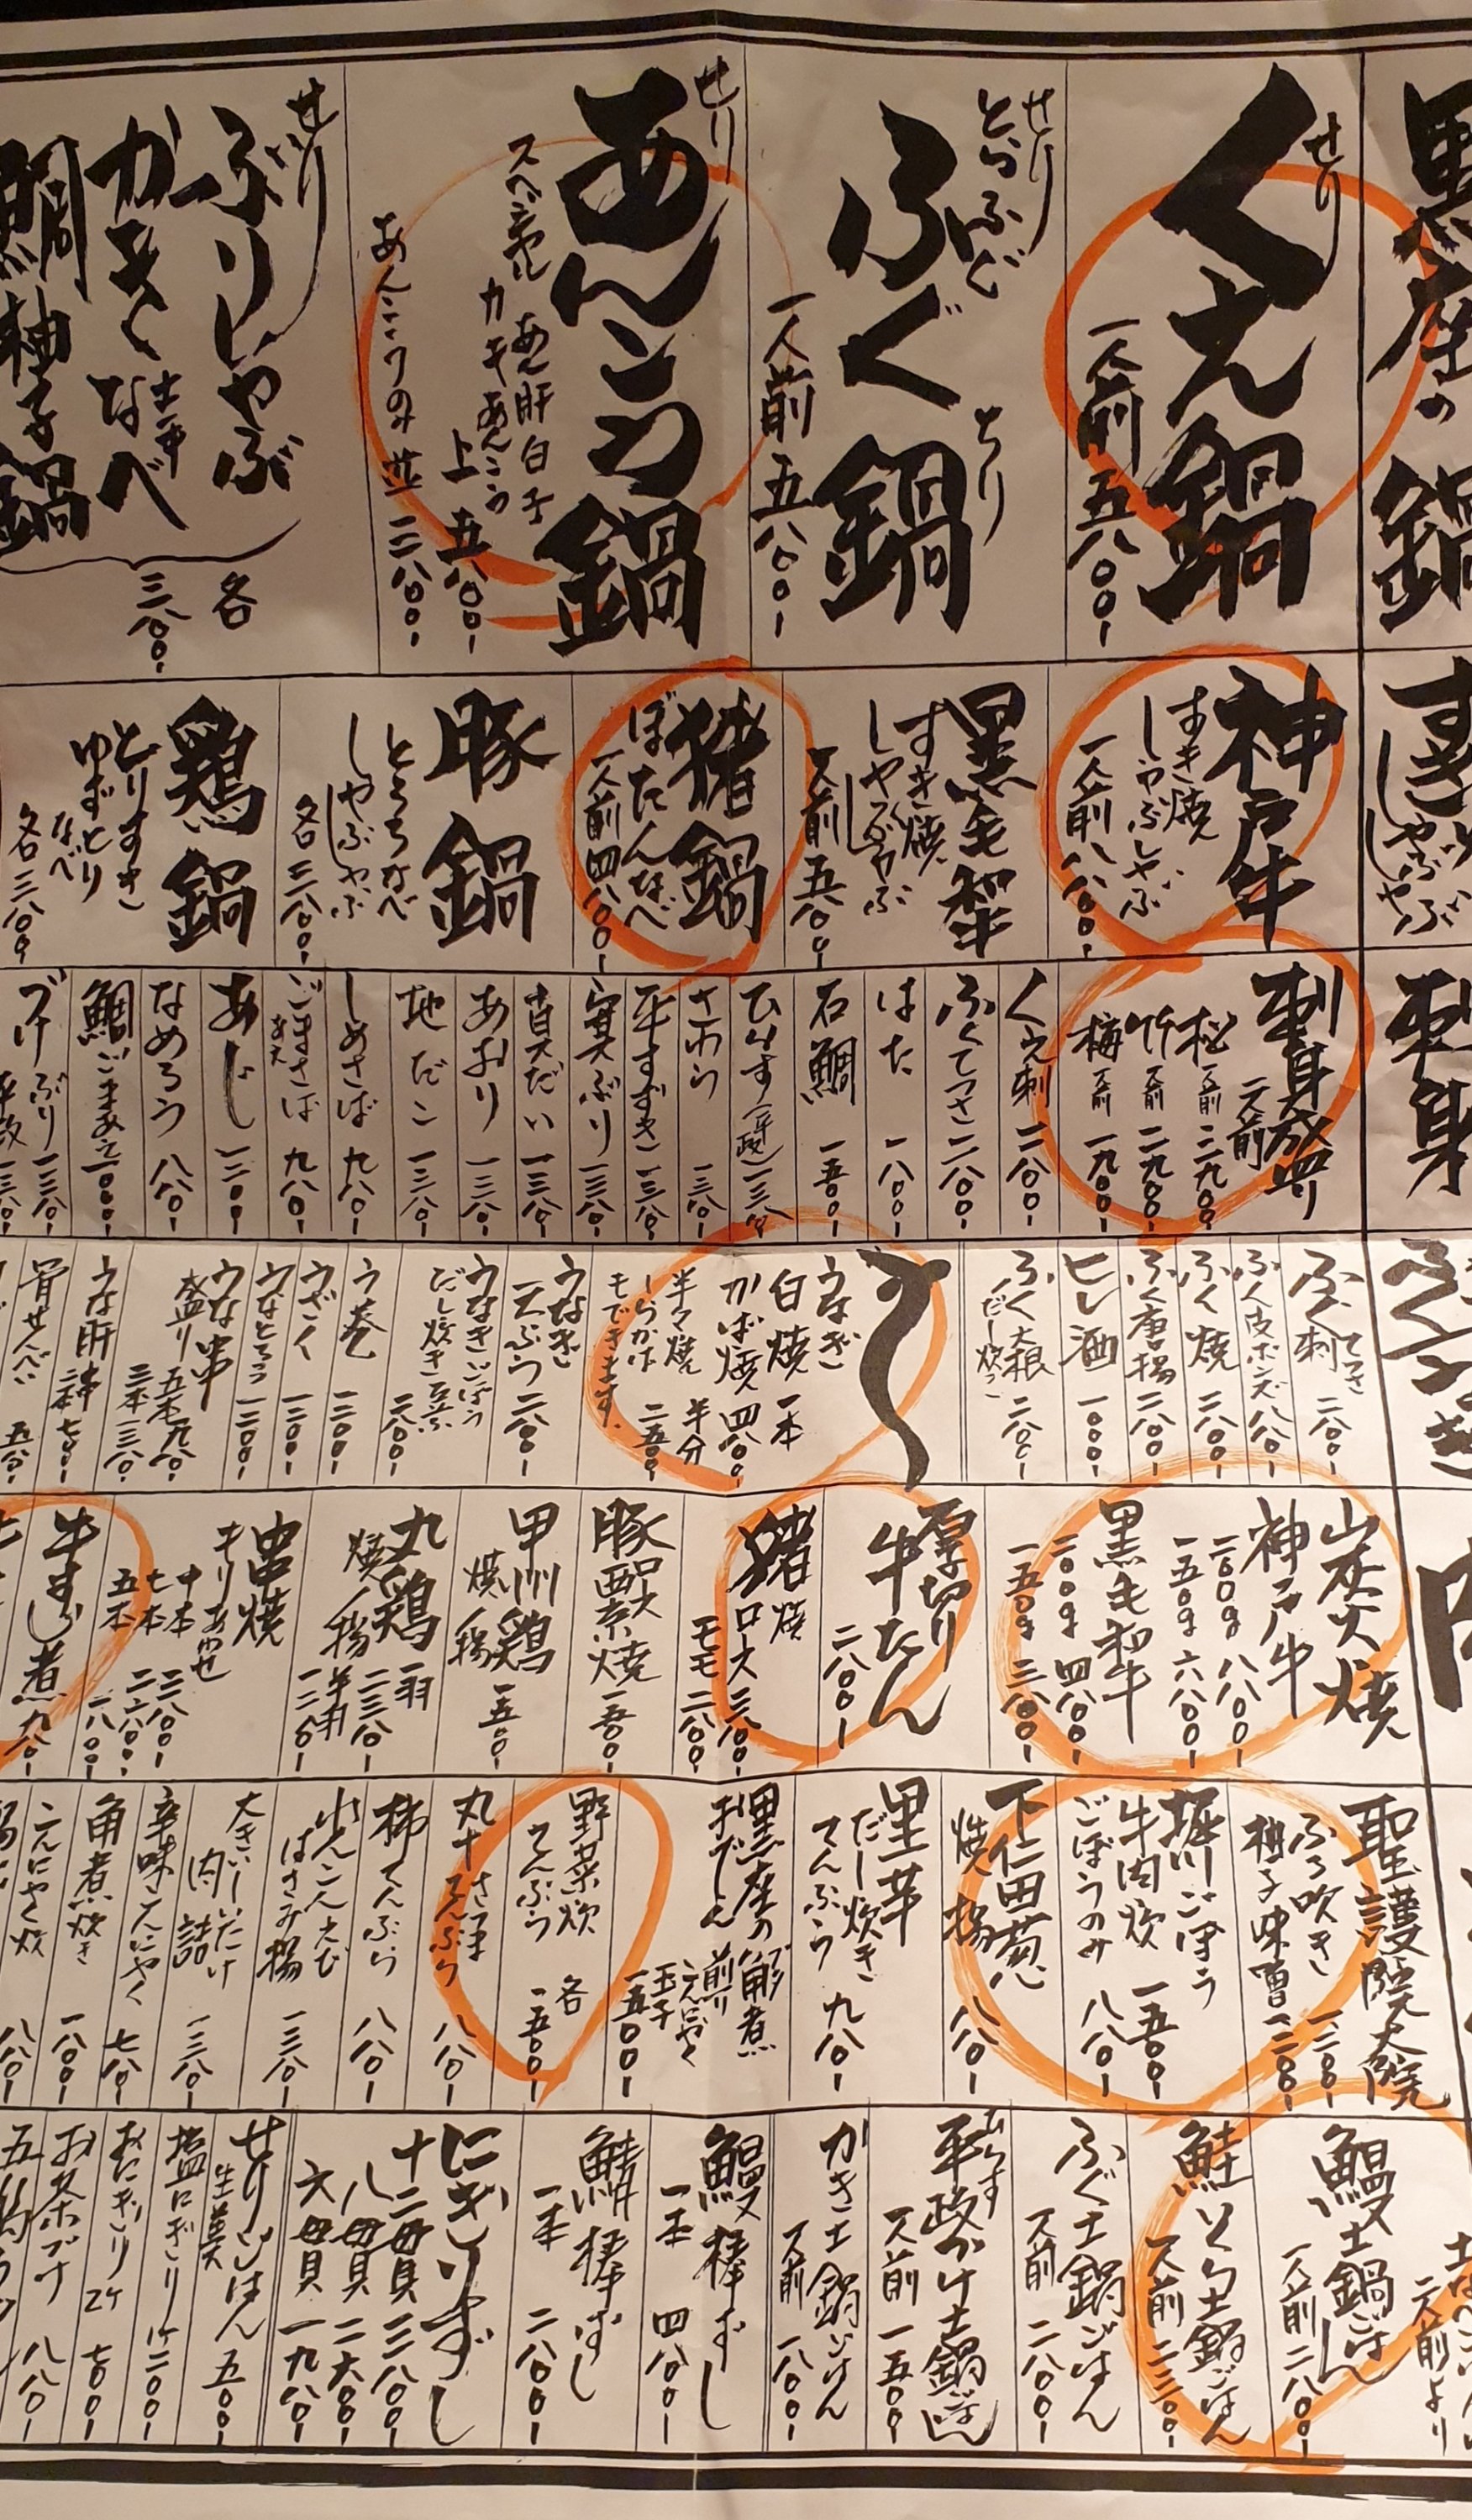 黒座の鍋
せり
くえ鍋
一人前 五八〇〇-
せり
とらふぐ
ふぐ鍋
ちり
一人前 五八〇〇-
せり
あんこう鍋
あん肝白子
カキあんこう
上 五八〇〇-
あんこうのみ 並 三八〇〇-
せり
ぶりしゃぶ
かきなべ
鯛柚子鍋
各 三八〇〇-
神戸牛
すき焼
しゃぶしゃぶ
一人前 八八〇〇-
黒毛和牛
すき焼
しゃぶしゃぶ
一人前 五八〇〇-
猪鍋
ぼたんなべ
一人前 四八〇〇-
豚鍋
とろろなべ
しゃぶしゃぶ
各 三八〇〇-
鶏鍋
とりすき
ゆずとり
なべ
各 三八〇〇-
刺身
刺身盛り
一人前
松 一人前 三九〇〇-
竹 一人前 二九〇〇-
梅 一人前 一九〇〇-
くえ刺 二八〇〇-
ふくてっさ 二八〇〇-
はた 一八〇〇-
石鯛 一五〇〇-
ひらす(平政) 一三八〇-
さわら 一三八〇-
平すずき 一三八〇-
寒ぶり 一三八〇-
真だい 一三八〇-
あおり 一三八〇-
地だこ 一三八〇-
しめさば 九八〇-
ごまさば 九八〇-
あじ 一二〇〇-
なめろう 八八〇-
鯛ごまあえ 一〇〇〇-
ふく刺 てっさ 二八〇〇-
ふく皮ポンズ 八八〇-
ふく焼 二八〇〇-
ふく唐揚 二八〇〇-
ヒレ酒 一〇〇〇-
ふく大根
だし炊 二八〇〇-
うなぎ
白焼 一本
かば焼 四八〇〇-
半々焼 半分
しらかば 二五〇〇-
もできます。
うなぎ
天ぷら 二八〇〇-
うなぎごぼう
だし炊き 二八〇〇-
う巻 一三〇〇-
うざく 一三〇〇-
うなとろろ 一三〇〇-
うな串
盛り 五本 一九八〇-
三本 一三八〇-
うな肝串 二本 七〇〇-
骨せんべい 五八〇-
山炭火焼
神戸牛
二〇〇g 八八〇〇-
一五〇g 六八〇〇-
黒毛和牛
二〇〇g 四八〇〇-
一五〇g 三八〇〇-
厚切り
牛たん
二八〇〇-
猪焼
ロース 三八〇〇-
モモ 二八〇〇-
豚西京焼 一五〇〇-
甲州鶏
焼/揚 一五〇〇-
丸鶏
焼/揚
一羽 二三八〇-
半羽 一三八〇-
串焼
きりあわせ
十本 三八〇〇-
七本 二六〇〇-
五本 一八〇〇-
牛すじ煮 九八〇-
聖護院大根
ふろ吹き 一二八〇-
柚子味噌 一二〇〇-
堀川ごぼう
牛肉炊 一五〇〇-
ごぼうのみ 八八〇-
下仁田葱
焼 揚 八八〇-
里芋
だし炊き
てんぷら 九八〇-
黒座の
おでん
角煮
こんにゃく
玉子
一五〇〇-
野菜炊
てんぷら
各 一五〇〇-
丸十 さつま
てんぷら 八八〇-
柿てんぷら 八八〇-
れんこんえび
はさみ揚 一三八〇-
大きいしいたけ
肉詰 一三八〇-
辛味こんにゃく 七八〇-
角煮炊き 一八〇〇-
こんにゃく炊 八八〇-
鰻土鍋ごはん
一人前 二八〇〇-
鮭いくら土鍋ごはん
一人前 二三〇〇-
ふぐ土鍋ごはん
一人前 二八〇〇-
ひらす
平政づけ土鍋ごはん
一人前 一五〇〇-
かき土鍋ごはん
一人前 一八〇〇-
鰻棒ずし
一本 四八〇〇-
鯖棒ずし
一本 二八〇〇-
にぎりずし
十二貫 三八〇〇-
八貫 二六〇〇-
六貫 一九八〇-
せりごはん
生姜 五〇〇-
塩にぎり 1ケ 二〇〇-
おにぎり 2ケ 七〇〇-
お茶づけ 八八〇-